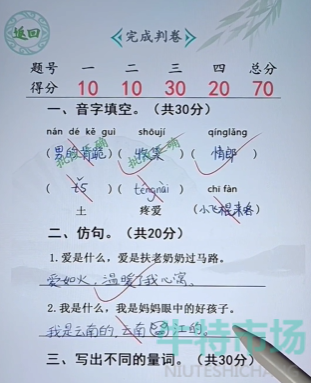 返回
完成判卷
题号 一 二 三 四 总分
得分 10 10 30 20 70
一、音字填空。（共30分）
nán dé kě guì shōují qínglǎng
（男的肯跪）（收集）（情郎）
（tǔ）（téngnài） chī fàn
土 疼爱 （小飞棍来咯）
二、仿句。（共20分）
1.爱是什么，爱是扶老奶奶过马路。
爱如火，温暖了我心窝。
2.我是什么，我是妈妈眼中的好孩子。
我是云南的，云南怒江的。
牛特市场
NIUTESHICHANG
三、写出不同的量词。（共30分）